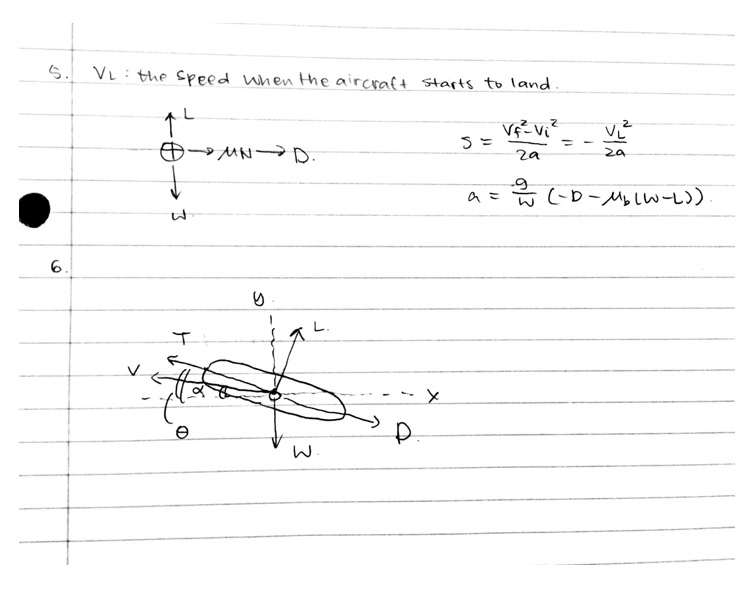 5. VL : the speed when the aircraft starts to land.
L
μN D.
W
s = Vf²-Vi² / 2a = - VL² / 2a
a = g/W (-D-μb(W-L))
6.
y
T L.
V α x
θ D.
W.